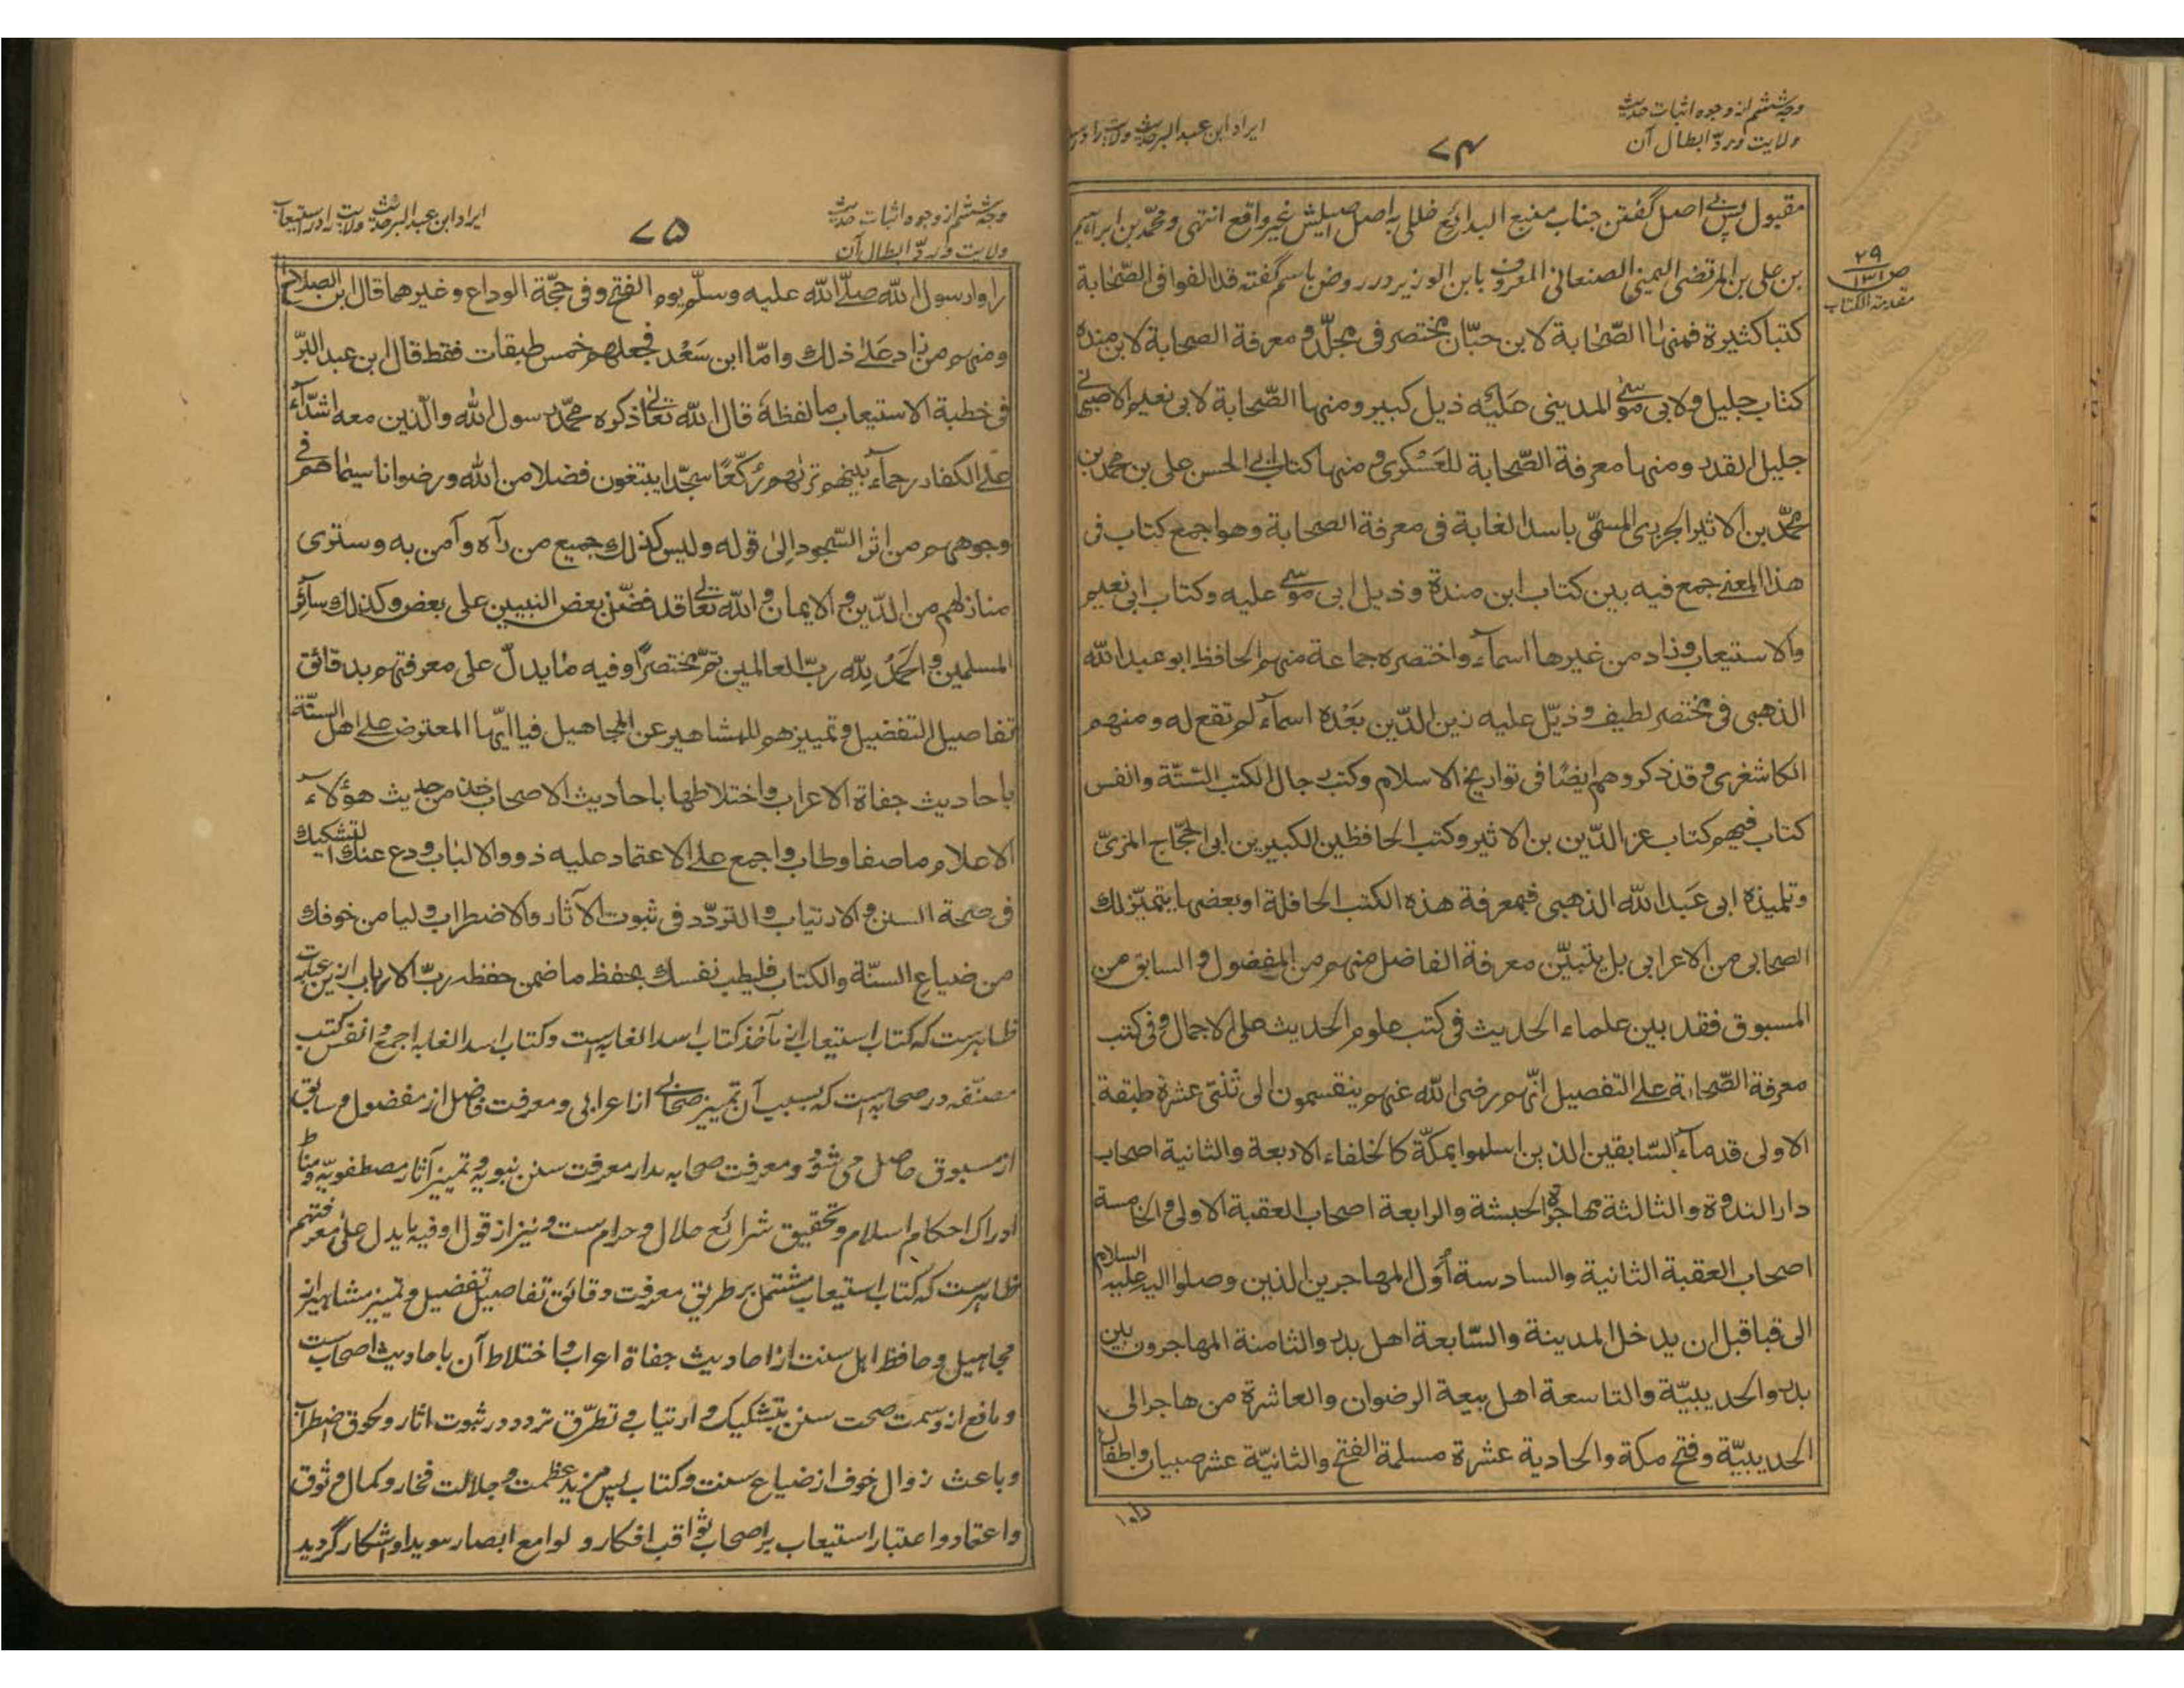 وجه ششم از وجوه اثبات حدیث
ولایت و ردّ ابطال آن
۷۴
ایراد ابن عبد البر حدیث ولایت را در
۲۹
ص۱۳۱
مقدمة الکتاب
مقبول پس بے اصل گفتن جناب منبع البدائع خللی به اصل اصیلش غیر واقع انتهی و محمّد بن ابراهیم
بن علی بن المرتضی الیمینی الصنعانی المعروف بابن الوزیر در روض باسم گفته قد الفوا فی الصّحابة
کتبا کثیرة فمنها الصّحابة لابن حبّان مختصر فی مجلّد و معرفة الصحابة لابن مندة
کتاب جلیل و لابی موسٰی المدینی علیه ذیل کبیر و منها الصّحابة لابی نعیم الاصبهانی
جلیل القدر و منها معرفة الصّحابة للعَسْکری و منها کتاب ابی الحسن علی بن محمد بن
محمّد بن الاثیر الجزری المسمّی باسد الغابة فی معرفة الصحابة و هو اجمع کتاب فی
هذا المعنے جمع فیه بین کتاب ابن مندة و ذیل ابی موسٰی علیه و کتاب ابی نعیم
والاستیعاب و زاد من غیرها اسمآء و اختصره جماعة منهم الحافظ ابو عبد الله
الذهبی فی مختصر لطیف و ذیّل علیه زین الدّین بَعْده اسمآء لم تقع له و منهم
الکاشغری و قد ذکروهم ایضًا فی تواریخ الاسلام و کتب رجال الکتب الستّة و انفس
کتاب فیهم کتاب عز الدّین بن الاثیر و کتب الحافظین الکبیرین ابی الحجّاج المزیّ
و تلمیذه ابی عَبد الله الذهبی فبمعرفة هذه الکتب الحافلة او بعضها یتمیّز لك
الصحابی من الاعرابی بل یتبیّن معرفة الفاضل منهم من المفضول و السابق من
المسبوق فقد بین علماء الحدیث فی کتب علوم الحدیث علی الاجمال و فی کتب
معرفة الصّحابة علے التفصیل انّهم رضی الله عنهم ینقسمون الی ثنتی عشرة طبقة
الاولی قدمآء السّابقین الذین اسلموا بمکّة کالخلفاء الاربعة والثانیة اصحاب
دار الندوة و الثالثة مهاجرة الحبشة والرابعة اصحاب العقبة الاولی و الخامسة
اصحاب العقبة الثانیة والسادسة أوّل المهاجرین الذین وصلوا الیه علیه السلام
الی قبا قبل ان یدخل المدینة والسّابعة اهل بدر والثامنة المهاجرون بین
بدر والحدیبیّة والتاسعة اهل بیعة الرضوان والعاشرة من هاجر الی
الحدیبیّة و فتح مکة والحادیة عشرة مسلمة الفتح والثانیّة عشر صبیان و اطفال
راوا
وجه ششم از وجوه اثبات حدیث
ولایت و ردّ ابطال آن
۷۵
ایراد ابن عبد البر حدیث ولایت را در استیعاب
راوا رسول الله صلّے الله علیه وسلّم یوم الفتح و فی حجّة الوداع و غیرهما قال ابن الصلاح
و منهم من زاد عَلٰے ذلك و امّا ابن سَعْد فجعلهم خمس طبقات فقط قال ابن عبد البرّ
فی خطبة الاستیعاب ما لفظهَ قال الله تعالٰی ذکره محمّد رسول الله والّذین معه اشدّآء
علے الکفار رحمآء بینهم تریٰهم رُکّعًا سجّدا یبتغون فضلا من الله و رضوانا سیماهم فی
وجوههم من اثر السّجود اِلیٰ قوله و لیس کذلك جمیع من رآه و آمن به و ستری
منازلهم من الدّین و الایمان و الله تعالٰی قد فضّل بعض النبیین علی بعض و کذلك سآئر
المسلمین و الحَمدُ لِلّه ربّ العالمین تمّ مختصرًا و فیه مایدلّ علی معرفتهم بدقائق
تفاصیل التفضیل و تمییزهم للمشاهیر عن المجاهیل فیا ایّها المعترض علے اهل السنّة
باحادیث جفاة الاعراب و اختلاطها باحادیث الاصحاب خذ من حدیث هؤلآء
الاعلام ما صفا و طاب و اجمع علے الاعتماد علیه ذوو الالباب و دع عنك التشکیك
فی صحة السنن و الارتیاب و التردّد فی ثبوت الآثار والاضطراب و لیا من خوفك
من ضیاع السنّة والکتاب فلیطب نفسك بحفظ ما ضمن حفظه ربّ الارباب ازین عبارت
ظاهرست که کتاب استیعاب از مآخذ کتاب اسد الغابه است و کتاب اسد الغابه اجمع و انفس کتب
مصنّفه در صحابه است که بسبب آن تمییز صحابی از اعرابی و معرفت فاضل از مفضول و سابق
از مسبوق حاصل می شود و معرفت صحابه مدار معرفت سنن نبویه و تمییز آثار مصطفویّه و مناط
ادراك احکام اسلام و تحقیق شرائع حلال و حرام ست و نیز از قول او فیه مایدل علیٰ معرفتهم
ظاهرست که کتاب استیعاب مشتمل بر طریق معرفت دقائق تفاصیل تفضیل و تمییز مشاهیر از
مجاهیل و حافظ اهل سنت از احادیث جفاة اعراب و اختلاط آن با احادیث اصحاب ست
و مانع از وسمت صحت سنن بتشکیک و ارتیاب و تطرّق تردد در ثبوت اثار و لحوق اضطراب
و باعث زوال خوف از ضیاع سنت و کتاب پس مزید عظمت و جلالت فخار و کمال وثوق
و اعتماد و اعتبار استیعاب بر اصحاب ثواقب افکار و لوامع ابصار هویدا و اشکار گردید